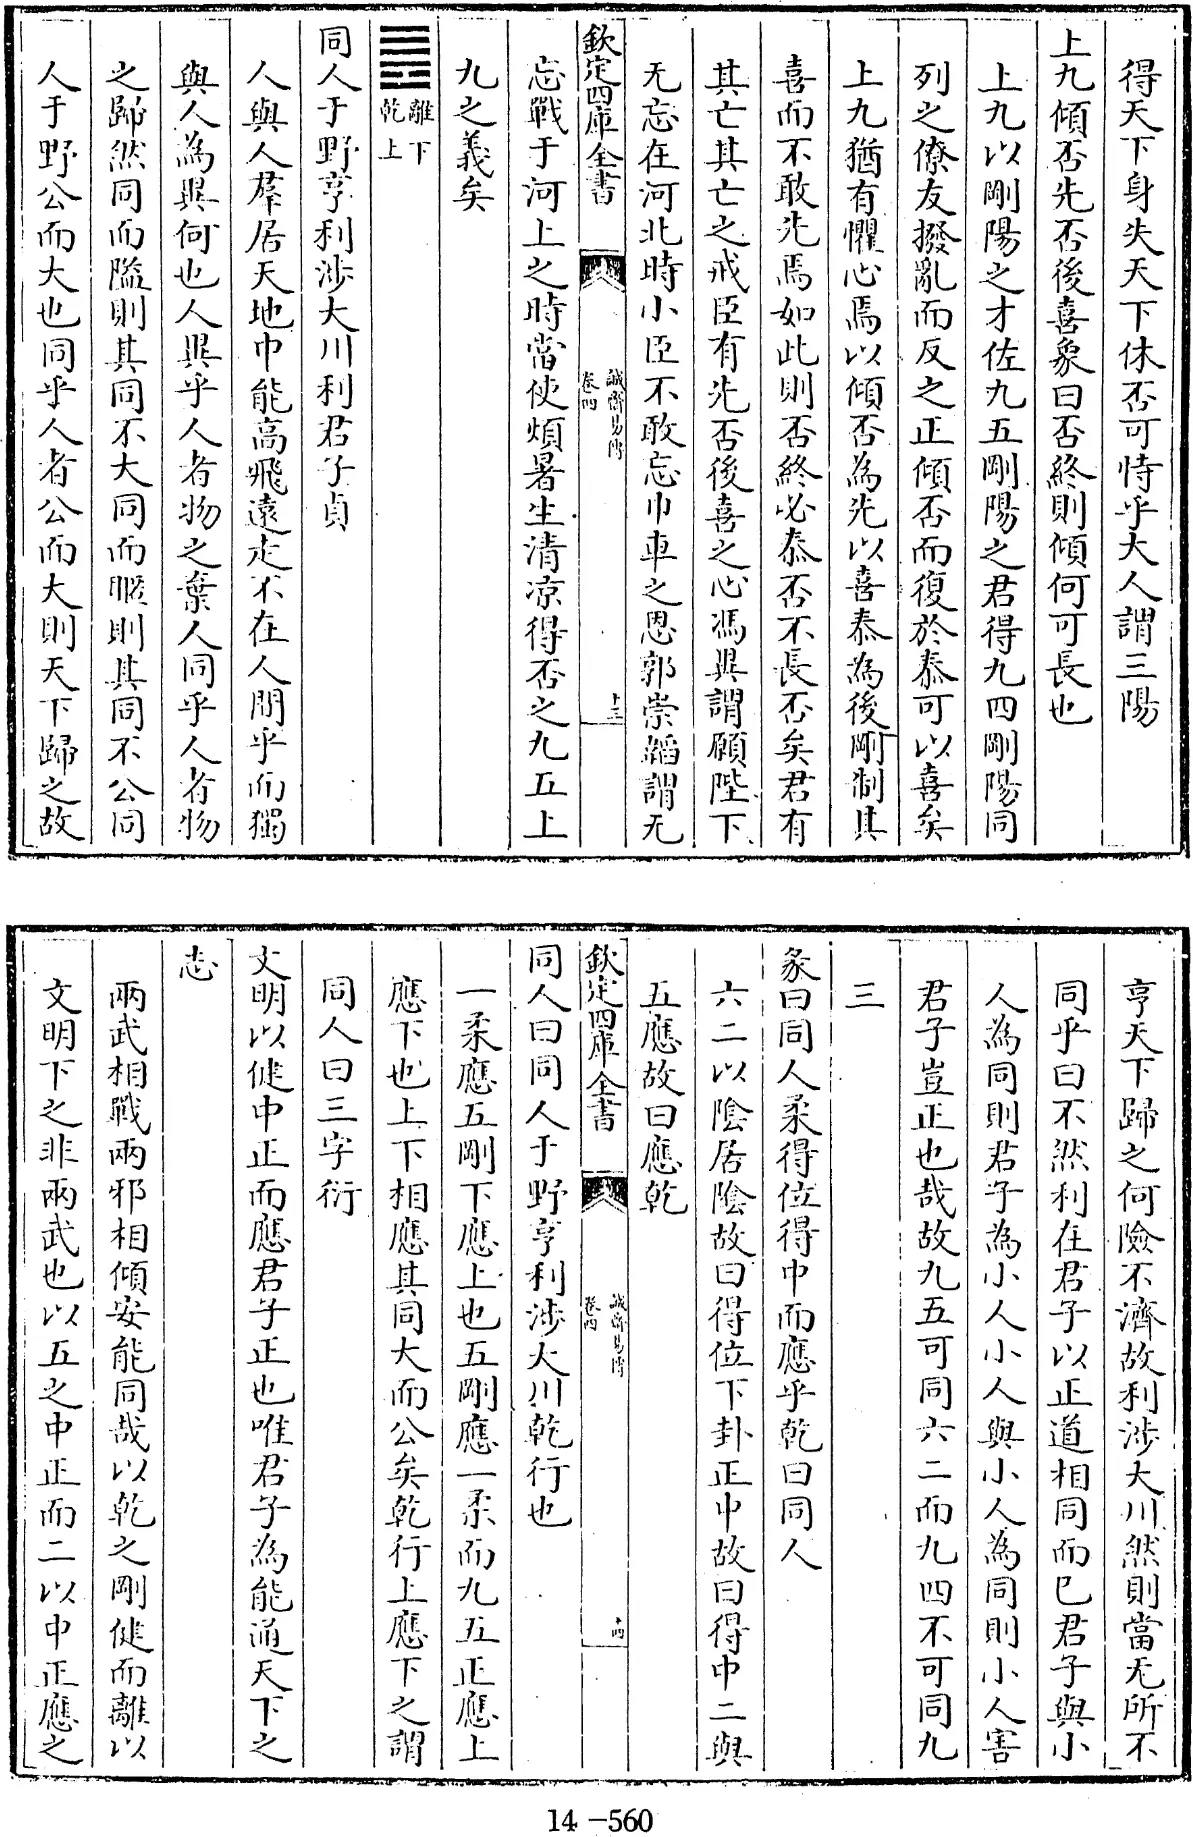 得天下身失天下休否可恃乎大人謂三陽
上九傾否先否後喜象曰否終則傾何可長也
上九以剛陽之才佐九五剛陽之君得九四剛陽同
列之僚友撥亂而反之正傾否而復於泰可以喜矣
上九猶有懼心焉以傾否為先以喜泰為後剛制其
喜而不敢先焉如此則否終必泰否不長否矣君有
其亡其亡之戒臣有先否後喜之心馮異謂願陛下
无忘在河北時小臣不敢忘巾車之恩郭崇韜謂无
欽定四庫全書
誠齋易傳
卷四
十三
忘戰于河上之時當使煩暑坐清凉得否之九五上
九之義矣
䷌離下
乾上
同人于野亨利涉大川利君子貞
人與人羣居天地中能高飛遠走不在人閒乎而獨
與人為異何也人異乎人者物之棄人同乎人者物
之歸然同而隘則其同不大同而暱則其同不公同
人于野公而大也同乎人者公而大則天下歸之故
亨天下歸之何險不濟故利涉大川然則當无所不
同乎曰不然利在君子以正道相同而已君子與小
人為同則君子為小人小人與小人為同則小人害
君子豈正也哉故九五可同六二而九四不可同九
三
彖曰同人柔得位得中而應乎乾曰同人
六二以陰居陰故曰得位下卦正中故曰得中二與
五應故曰應乾
欽定四庫全書
誠齋易傳
卷四
十四
同人曰同人于野亨利涉大川乾行也
一柔應五剛下應上也五剛應一柔而九五正應上
應下也上下相應其同大而公矣乾行上應下之謂
同人曰三字衍
文明以健中正而應君子正也唯君子為能通天下之
志
兩武相戰兩邪相傾安能同哉以乾之剛健而離以
文明下之非兩武也以五之中正而二以中正應之
14-560